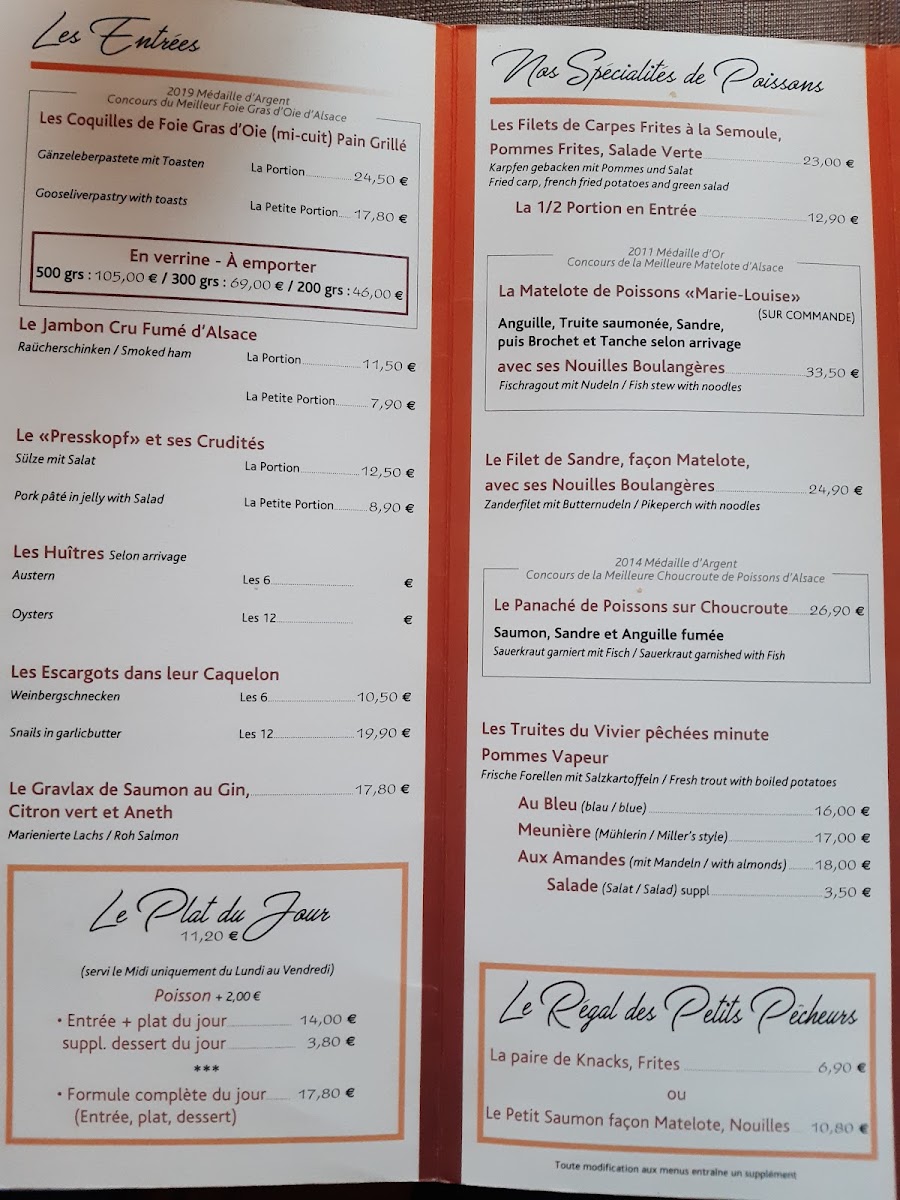 Les Entrées
2019 Médaille d'Argent
Concours du Meilleur Foie Gras d'Oie d'Alsace
Les Coquilles de Foie Gras d'Oie (mi-cuit) Pain Grillé
Gänzeleberpastete mit Toasten
La Portion 24,50 €
Gooseliverpastry with toasts
La Petite Portion 17,80 €
En verrine - À emporter
500 grs : 105,00 € / 300 grs : 69,00 € / 200 grs : 46,00 €
Le Jambon Cru Fumé d'Alsace
Raücherschinken / Smoked ham
La Portion 11,50 €
La Petite Portion 7,90 €
Le «Presskopf» et ses Crudités
Sülze mit Salat
La Portion 12,50 €
Pork pâté in jelly with Salad
La Petite Portion 8,90 €
Les Huîtres Selon arrivage
Austern
Les 6 €
Oysters
Les 12 €
Les Escargots dans leur Caquelon
Weinbergschnecken
Les 6 10,50 €
Snails in garlicbutter
Les 12 19,90 €
Le Gravlax de Saumon au Gin, 17,80 €
Citron vert et Aneth
Marienierte Lachs / Roh Salmon
Le Plat du Jour
11,20 €
(servi le Midi uniquement du Lundi au Vendredi)
Poisson + 2,00 €
• Entrée + plat du jour 14,00 €
suppl. dessert du jour 3,80 €
***
• Formule complète du jour 17,80 €
(Entrée, plat, dessert)
Nos Spécialités de Poissons
Les Filets de Carpes Frites à la Semoule,
Pommes Frites, Salade Verte 23,00 €
Karpfen gebacken mit Pommes und Salat
Fried carp, french fried potatoes and green salad
La 1/2 Portion en Entrée 12,90 €
2011 Médaille d'Or
Concours de la Meilleure Matelote d'Alsace
La Matelote de Poissons «Marie-Louise»
(SUR COMMANDE)
Anguille, Truite saumonée, Sandre,
puis Brochet et Tanche selon arrivage
avec ses Nouilles Boulangères 33,50 €
Fischragout mit Nudeln / Fish stew with noodles
Le Filet de Sandre, façon Matelote,
avec ses Nouilles Boulangères 24,90 €
Zanderfilet mit Butternudeln / Pikeperch with noodles
2014 Médaille d'Argent
Concours de la Meilleure Choucroute de Poissons d'Alsace
Le Panaché de Poissons sur Choucroute 26,90 €
Saumon, Sandre et Anguille fumée
Sauerkraut garniert mit Fisch / Sauerkraut garnished with Fish
Les Truites du Vivier pêchées minute
Pommes Vapeur
Frische Forellen mit Salzkartoffeln / Fresh trout with boiled potatoes
Au Bleu (blau / blue) 16,00 €
Meunière (Mühlerin / Miller's style) 17,00 €
Aux Amandes (mit Mandeln / with almonds) 18,00 €
Salade (Salat / Salad) suppl 3,50 €
Le Régal des Petits Pêcheurs
La paire de Knacks, Frites 6,90 €
ou
Le Petit Saumon façon Matelote, Nouilles 10,80 €
Toute modification aux menus entraîne un supplément